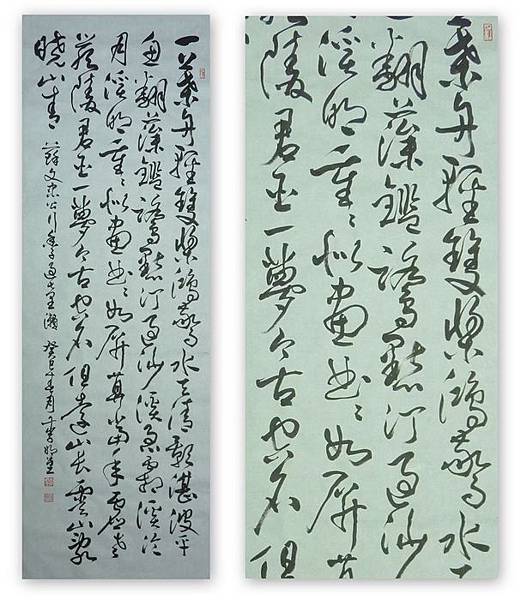 一葉舟輕雙槳鴻驚水天清影湛波平
魚翻藻鑑鷺點汀過沙溪急霜溪冷
月溪明重〻似畫曲〻如屏算當年虛老
嚴陵君臣一夢今古空名但遠山長雲山亂
曉山青 蘇文忠公行香子過七里瀨 癸巳年春月
葉舟輕雙槳鴻驚水天
翻藻鑑鷺點汀過沙
溪明重〻似畫曲〻如屏算
陵君臣一夢今古空名但